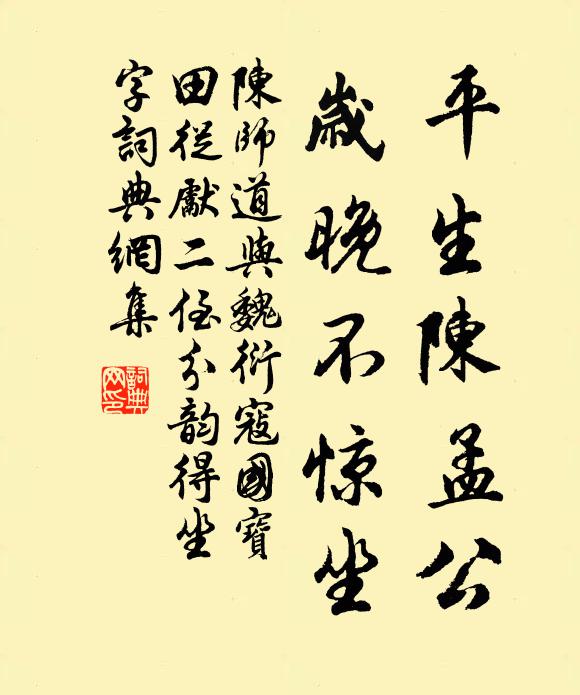 平生陳孟公
歲晚不惊坐
陳師道與魏衍寇國寶
田從獻二侄分韵得坐
字詞典網集
詞典網印